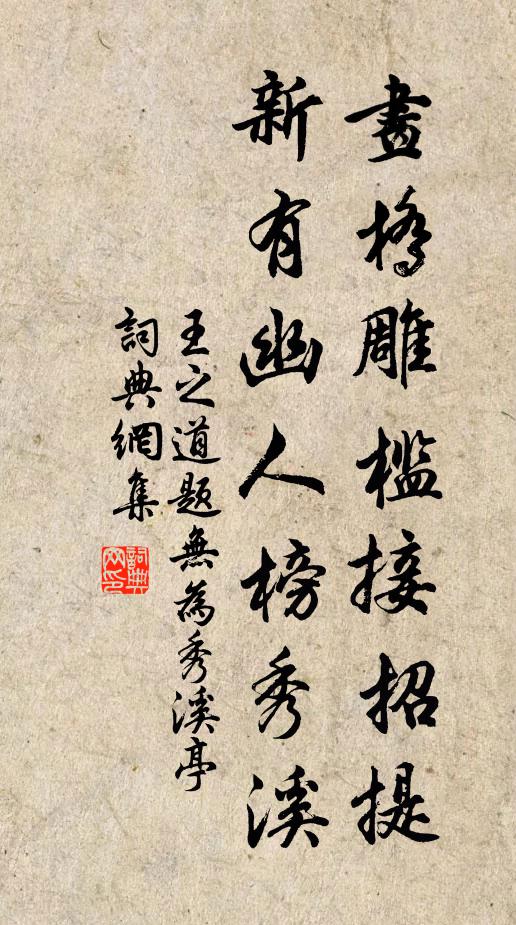 畫橋雕檻接招提
新有幽人榜秀溪
王之道題無為秀溪亭
詞典網集
詞典網印